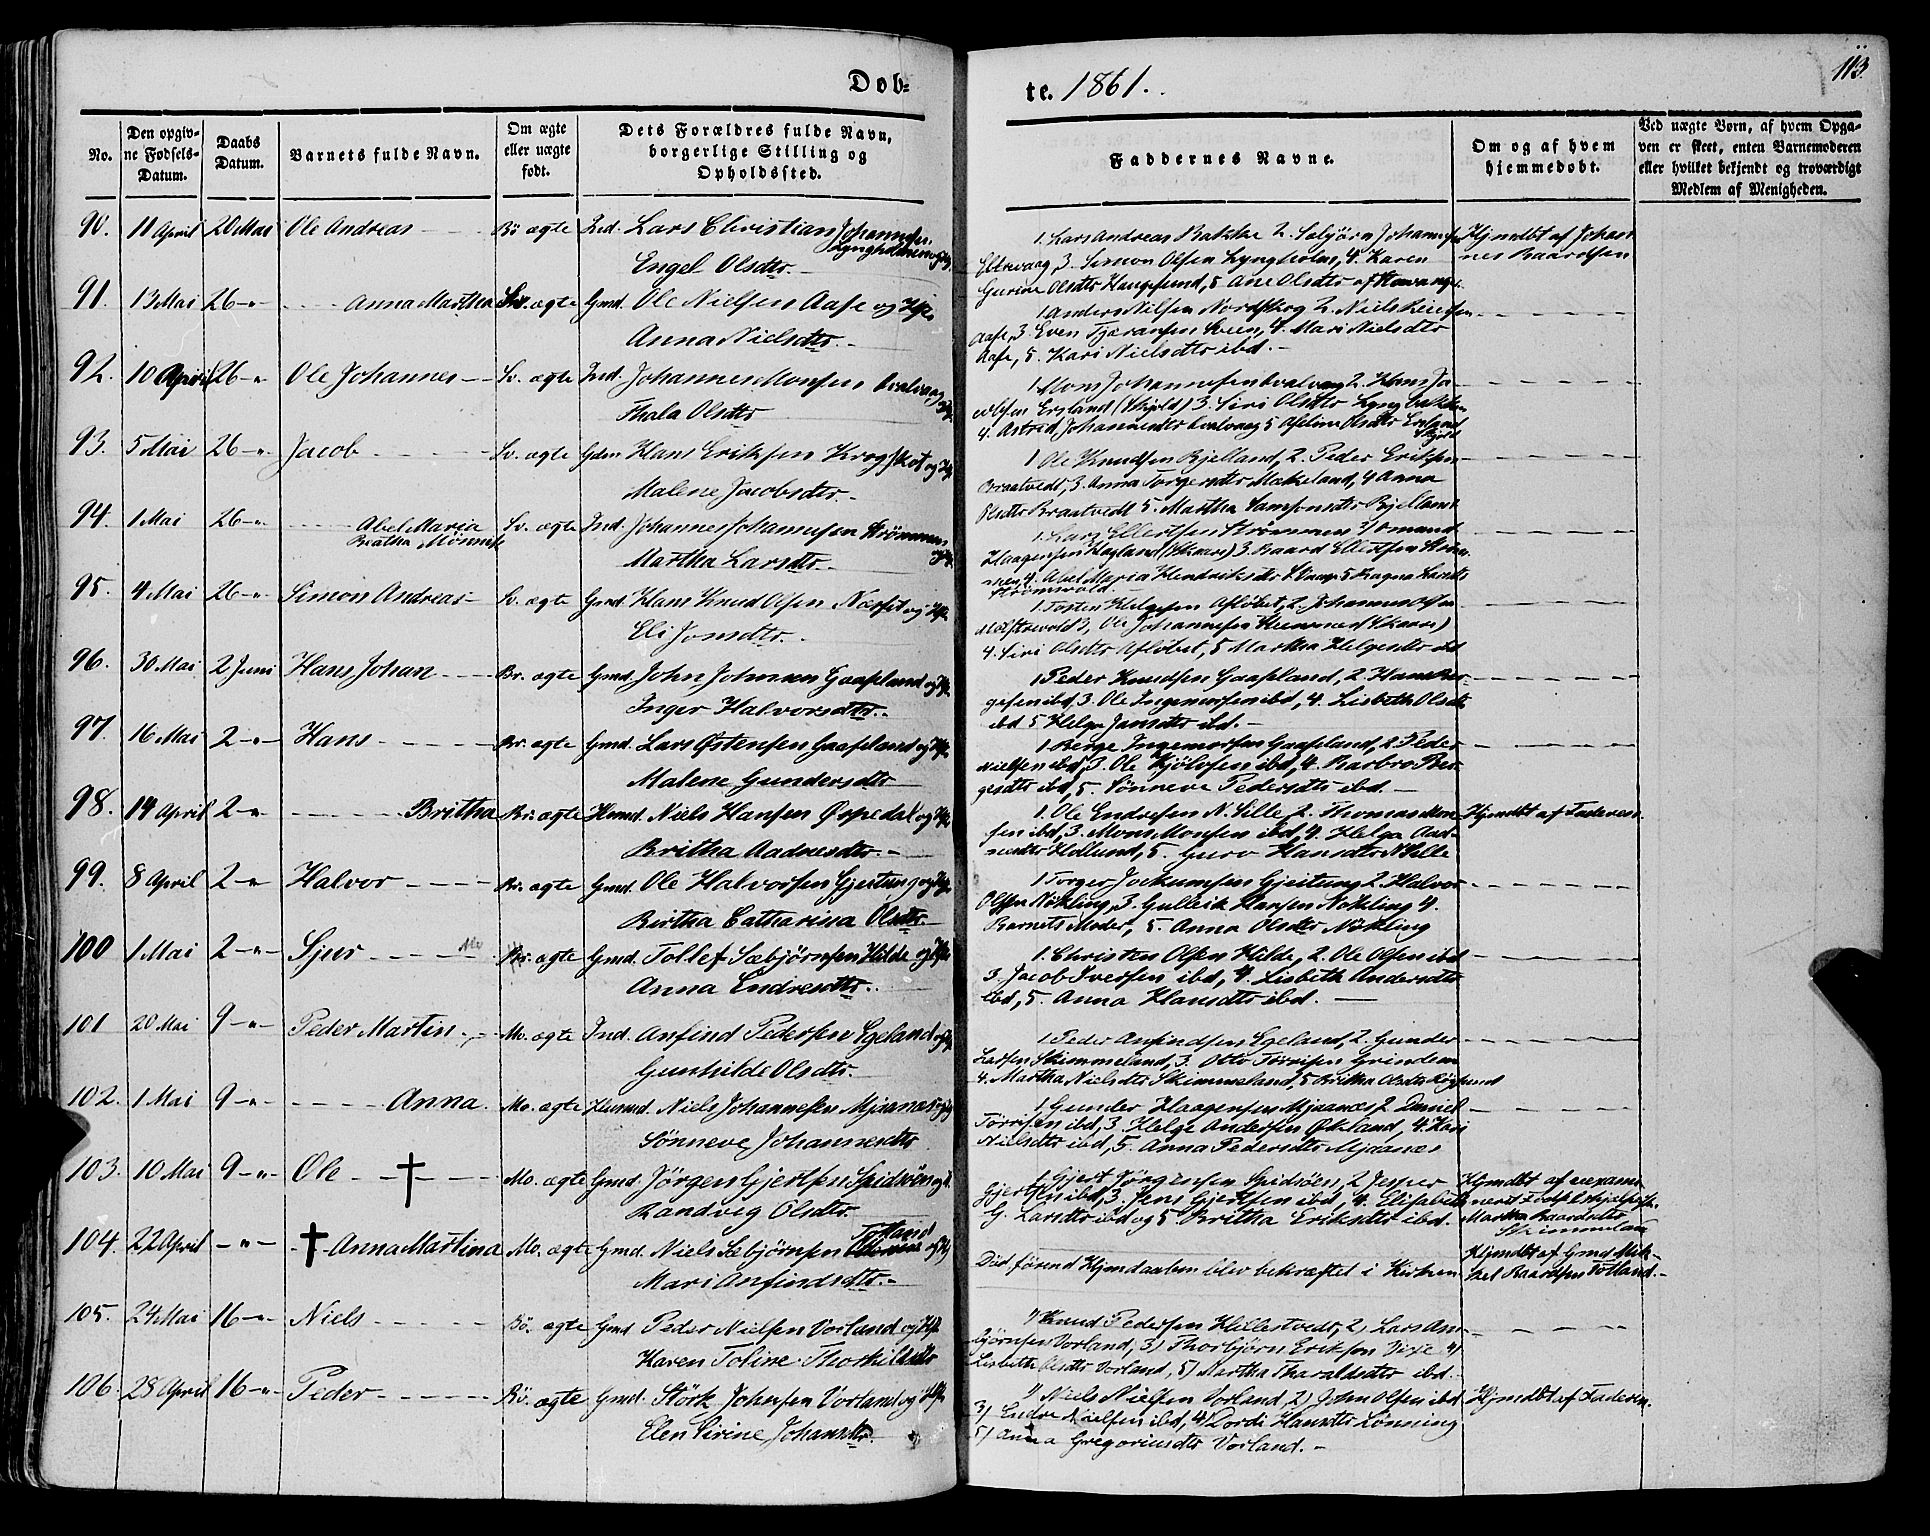 Døb-
te. 1861.
113
No.
Den opgiv-
ne Fødsels-
Datum.
Daabs
Datum.
Barnets fulde Navn.
Om ægte
eller uægte
født.
Dets Forældres fulde Navn,
borgerlige Stilling og
Opholdssted.
Faddernes Navne.
Om og af hvem
hjemmedøbt.
Ved uægte Børn, af hvem Opga-
ven er skeet, enten Barnemoderen
eller hvilket bekjendt og troværdigt
Medlem af Menigheden.
90. 11 April 20 Mai Ole Andreas Bø ægte Lars Christian Johannesen
Engel Olsdtr.
1. Lars Andreas Bakke 2. Johannesen
3. Simon Olsen Lyngholm, 4. Karen
Gurine Olsdtr Haugesund, 5 Ane Olsdtr
Hjemdbt af Johan-
nes Baardsen
91. 13 Mai 26 -"- Anna Martha ægte Gmd. Ole Nielsen Aase og H.
Anna Nielsdtr.
1 Anders Nilsen 2. Niels
Aase, 3. Even Steen, 4. Mari Nielsdtr
Aase, 5. Kari Nielsdtr ibd.
92. 10 April 26 -"- Ole Johannes Sv. ægte Ind. Johannes Monsen
Thala Olsdtr
1 Mons Johannesen 2. Hans Ja-
cobsen Ersland (Skjold) 3. Siri Olsdtr
4. Astrid Johannesdtr 5 Olsdtr Ersland
Skjold
93. 5 Mai 26 -"- Jacob Sv. ægte Gdm Hans Eriksen Krogskot og H.
Malene Jacobsdtr.
1 Ole Knudsen Bjelland, 2. Peder Eriksen
Braatvedt, 3. Anna Torgersdtr Makeland, 4 Anna
Olsdtr Braatvedt 5. Martha Samsonsdtr Bjelland
94. 1 Mai 26 -"- Abel Maria
Sv. ægte Ind. Johannes Johannesen Strømmen
Martha Larsdtr.
1. Lars Ellertsen Strømmen 2 Omund
Haagensen Hagland (Skaare) 3. Baard Ellertsen Strøm-
men, 4. Abel Maria Hendriksdtr 5 Ragna Larsdtr
95. 4 Mai 26 -"- Simon Andreas Sv. ægte Gmd. Hans Knud Olsen og H.
Eli Jonsdtr.
1. Tosten Helgesen 2. Johannes Olsen
3, Ole Johannesen (Skaare)
4. Siri Olsdtr 5 Martha Helgesdtr ibd
96. 30 Mai 2 Juni Hans Johan Br. ægte Gmd. John Johnsen Gaasland og H.
Inger Halvorsdtr.
1 Peder Knudsen Gaasland, 2. Hans Ber-
gesen ibd, 3. Ole Ingemorsen ibd, 4. Lisbeth Olsdtr
ibd 5 Helga Jansdtr ibd.
97. 16 Mai 2 -"- Hans Br. ægte Gmd. Lars Østensen Gaasland og H.
Malene Gundersdtr
1. Berge Ingemorsen Gaasland, 2 Peder
Nielsen ibd, 3. Ole Kjølvsen ibd, 4. Barbro Ber-
gesdtr ibd, 5. Sønneve Pedersdtr ibd.
98. 14 April 2 -"- Britha Br. ægte Husmd. Niels Hansen Øvpedal og H.
Britha Aadnesdtr.
1. Ole Endresen N. Lille 2. Thomas Mon-
sen ibd, 3. Mons Monsen ibd, 4. Helga Aad-
nesdtr Hedlund, 5. Guro Hansdtr N. Lille
Hjemdbt af Faderen
99. 8 April 2 -"- Halvor Br. ægte Gmd. Ole Halvorsen Gjertung og H.
Birtha Catharina Olsdtr.
1 Torger Jockumsen Gjeitung 2 Halvor
Olsen Nøkling, 3. Gulleik Hansen Nøkling 4.
Barnets Moder, 5. Anna Olsdtr Nøkling
100 1 Mai 2 -"- Sjur Br. ægte Gmd. Tollef Sæbjørnsen Hilde og H.
Anna Endresdtr.
1. Christen Olsen Hilde, 2. Ole Olsen ibd
3. Jacob Iversen ibd, 4. Lisbeth Andersdtr
ibd, 5. Anna Hansdtr ibd.
101 20 Mai 9 -"- Peder Martin Mo. ægte Ind. Anfind Pedersen Egeland og H.
Gunhilde Olsdtr.
1. Peder Anfindsen Egeland, 2. Gunder
Larsen Skimmeland, 3. Otto Torrisen Grindem
4. Martha Nielsdtr Skimmeland, 5 Britha Olsdtr
102. 1 Mai 9 -"- Anna. Mo. ægte Husmd. Niels Johannesen Mjaanæs og H.
Sønneve Johannesdtr
1 Gunder Haagensen Mjaanæs 2 Daniel
Torrisen ibd, 3. Helge Andersen Økland, 4. Kari
Nielsdtr ibd, 5. Anna Pedersdtr Mjaanæs
103. 10 Mai 9 -"- Ole Mo. ægte Gmd. Jørgen Gjertsen Spidsøen og H.
Randveig Olsdtr.
1 Gjert Jørgensen Spidsøen, 2 Jesper
Gjertsen ibd, 3. Jens Gjertsen ibd, 4. Elisabeth
G. Larsdtr ibd og 5 Britha Eriksdtr ibd.
Hjemdbt af exami-
neret Fødselshjælperske
Martha Baardsdtr
Skimmeland
104. 22 April -"- Anna Martina Mo. ægte Gmd. Niels Sæbjørnsen Totland og H.
Mari Anfindsdtr.
Død førend Hjemdaaben blev bekræftet i Kirken
Hjemdbt af Gmd Mik-
kel Baardsen Totland.
105. 24 Mai 16 -"- Niels Bø. ægte Gmd Peder Nielsen Vorland og H.
Karen Toline Thorkildsdtr
1) Knud Pedersen Hillestvedt, 2) Lars Am-
bjørnsen Vorland, 3) Thorbjørn Eriksen Vixe 4)
Lisbeth Olsdtr Vorland, 5) Martha Tharaldsdtr ibd.
106. 28 April 16 -"- Peder Bø. ægte Gmd. Størk Johnsen Vorland og H.
Elen Sirine Johansdtr.
1) Niels Nielsen Vorland, 2) John Olsen ibd
3) Endre Nielsen ibd, 4) Dordi Hansdtr Lønning
5) Anna Gregoriusdtr Vorland.
Hjemdbt af Faderen.